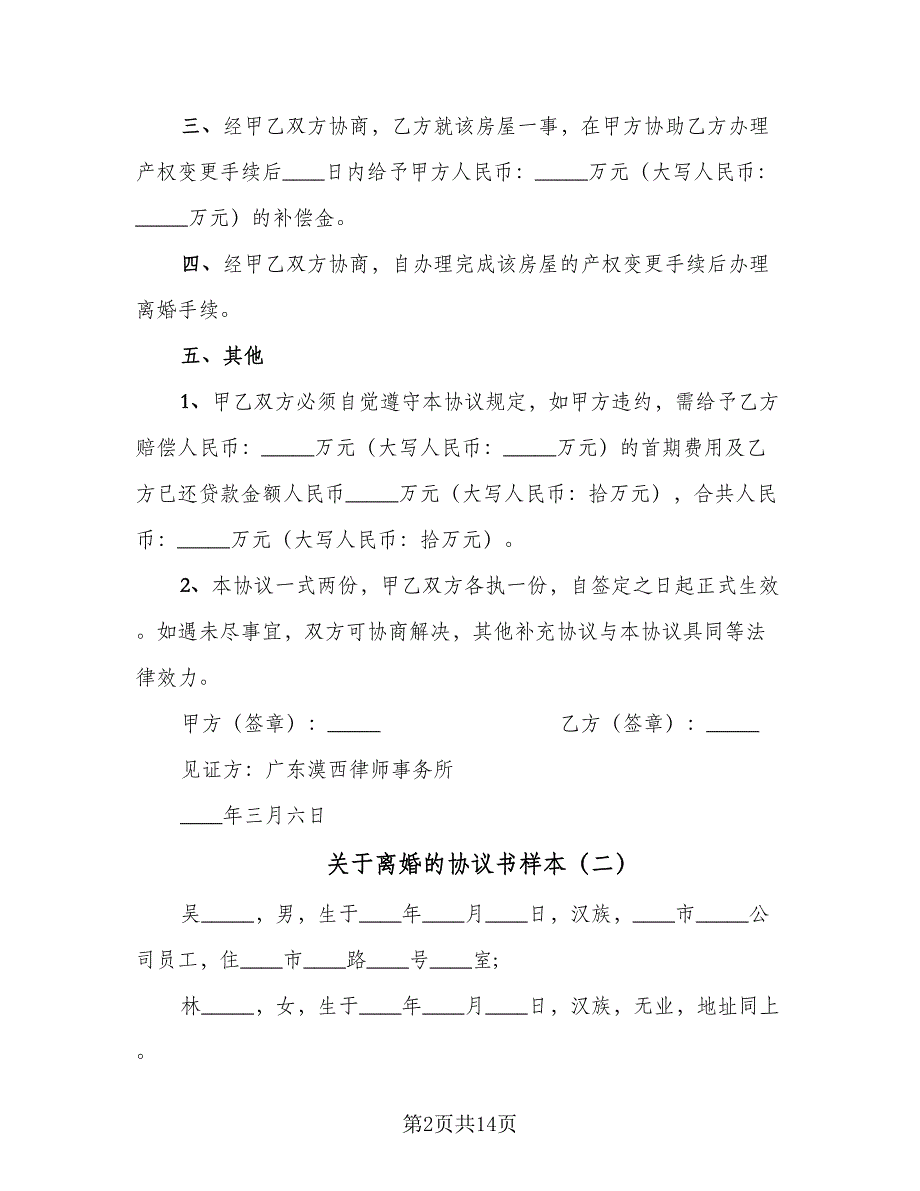 三、经甲乙双方协商，乙方就该房屋一事，在甲方协助乙方办理
产权变更手续后____日内给予甲方人民币：_____万元（大写人民币：
_____万元）的补偿金。
四、经甲乙双方协商，自办理完成该房屋的产权变更手续后办理
离婚手续。
五、其他
1、甲乙双方必须自觉遵守本协议规定，如甲方违约，需给予乙方
赔偿人民币：_____万元（大写人民币：_____万元）的首期费用及乙
方已还贷款金额人民币_____万元（大写人民币：拾万元），合共人民
币：_____万元（大写人民币：拾万元）。
2、本协议一式两份，甲乙双方各执一份，自签定之日起正式生效
。如遇未尽事宜，双方可协商解决，其他补充协议与本协议具同等法
律效力。
甲方（签章）：_____ 乙方（签章）：_____
见证方：广东漠西律师事务所
____年三月六日
关于离婚的协议书样本（二）
吴_____，男，生于____年____月____日，汉族，____市_____公
司员工，住____市____路____号____室;
林_____，女，生于____年____月____日，汉族，无业，地址同上
。
第2页共14页